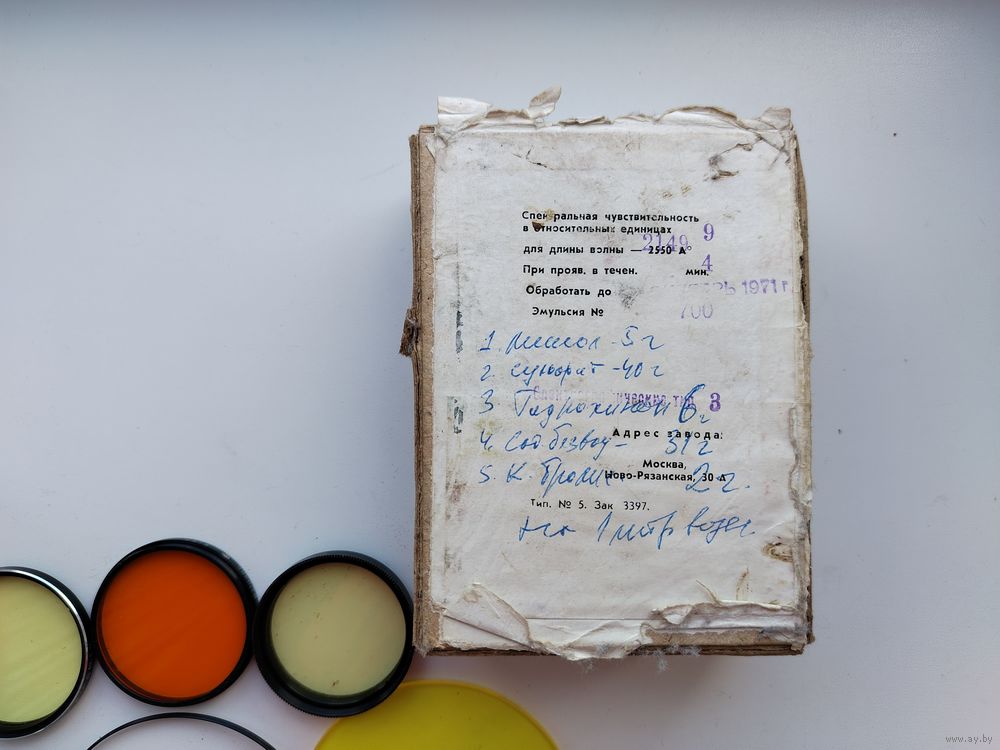 Спектральная чувствительность
в относительных единицах 9
для длины волны — 2550 A° 2149
При прояв. в течен. 4 мин.
Обработать до 1971 г
Эмульсия № 700
1. Метол - 5 г
2. Сульфит - 40 г
Спектрографические тип 3
3 Гидрохинон 6 г
Адрес завода:
4. Сод. безвод - 31 г
Москва,
Ново-Рязанская, 30 А
5. К. Бром 2 г.
Тип. № 5. Зак 3397.
На 1 литр воды
www.ay.by